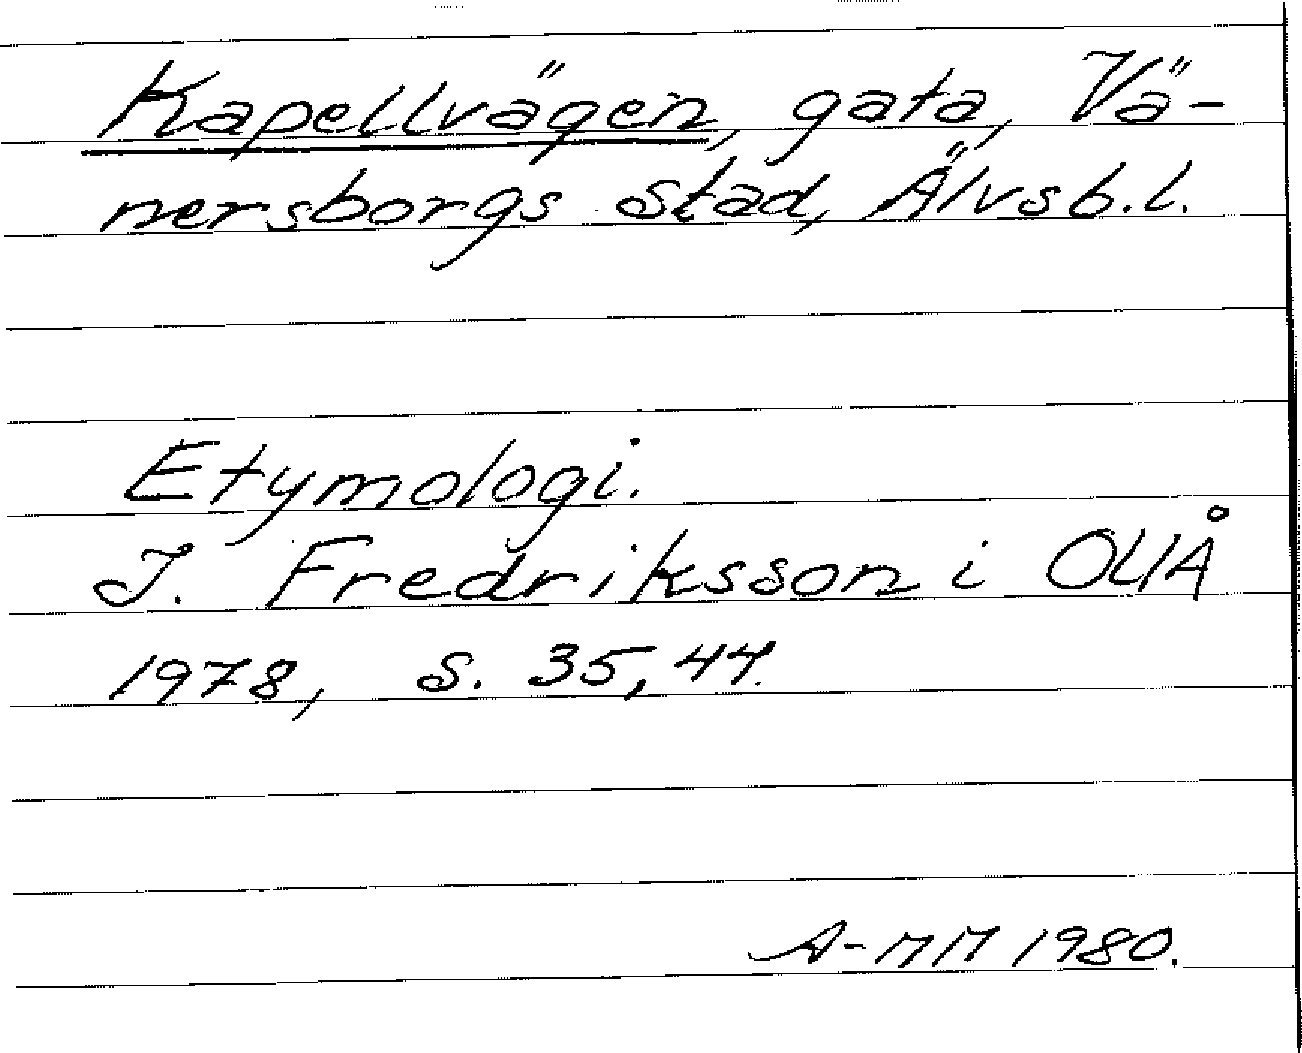 Kapellvägen, gata, Vä-
nersborgs stad, Älvsb.l.
Etymologi.
I. Fredriksson i OUÅ
1978, s. 35, 44.
A-MM 1980.